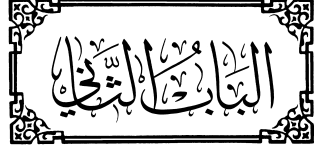 البَابُ الثَّاني